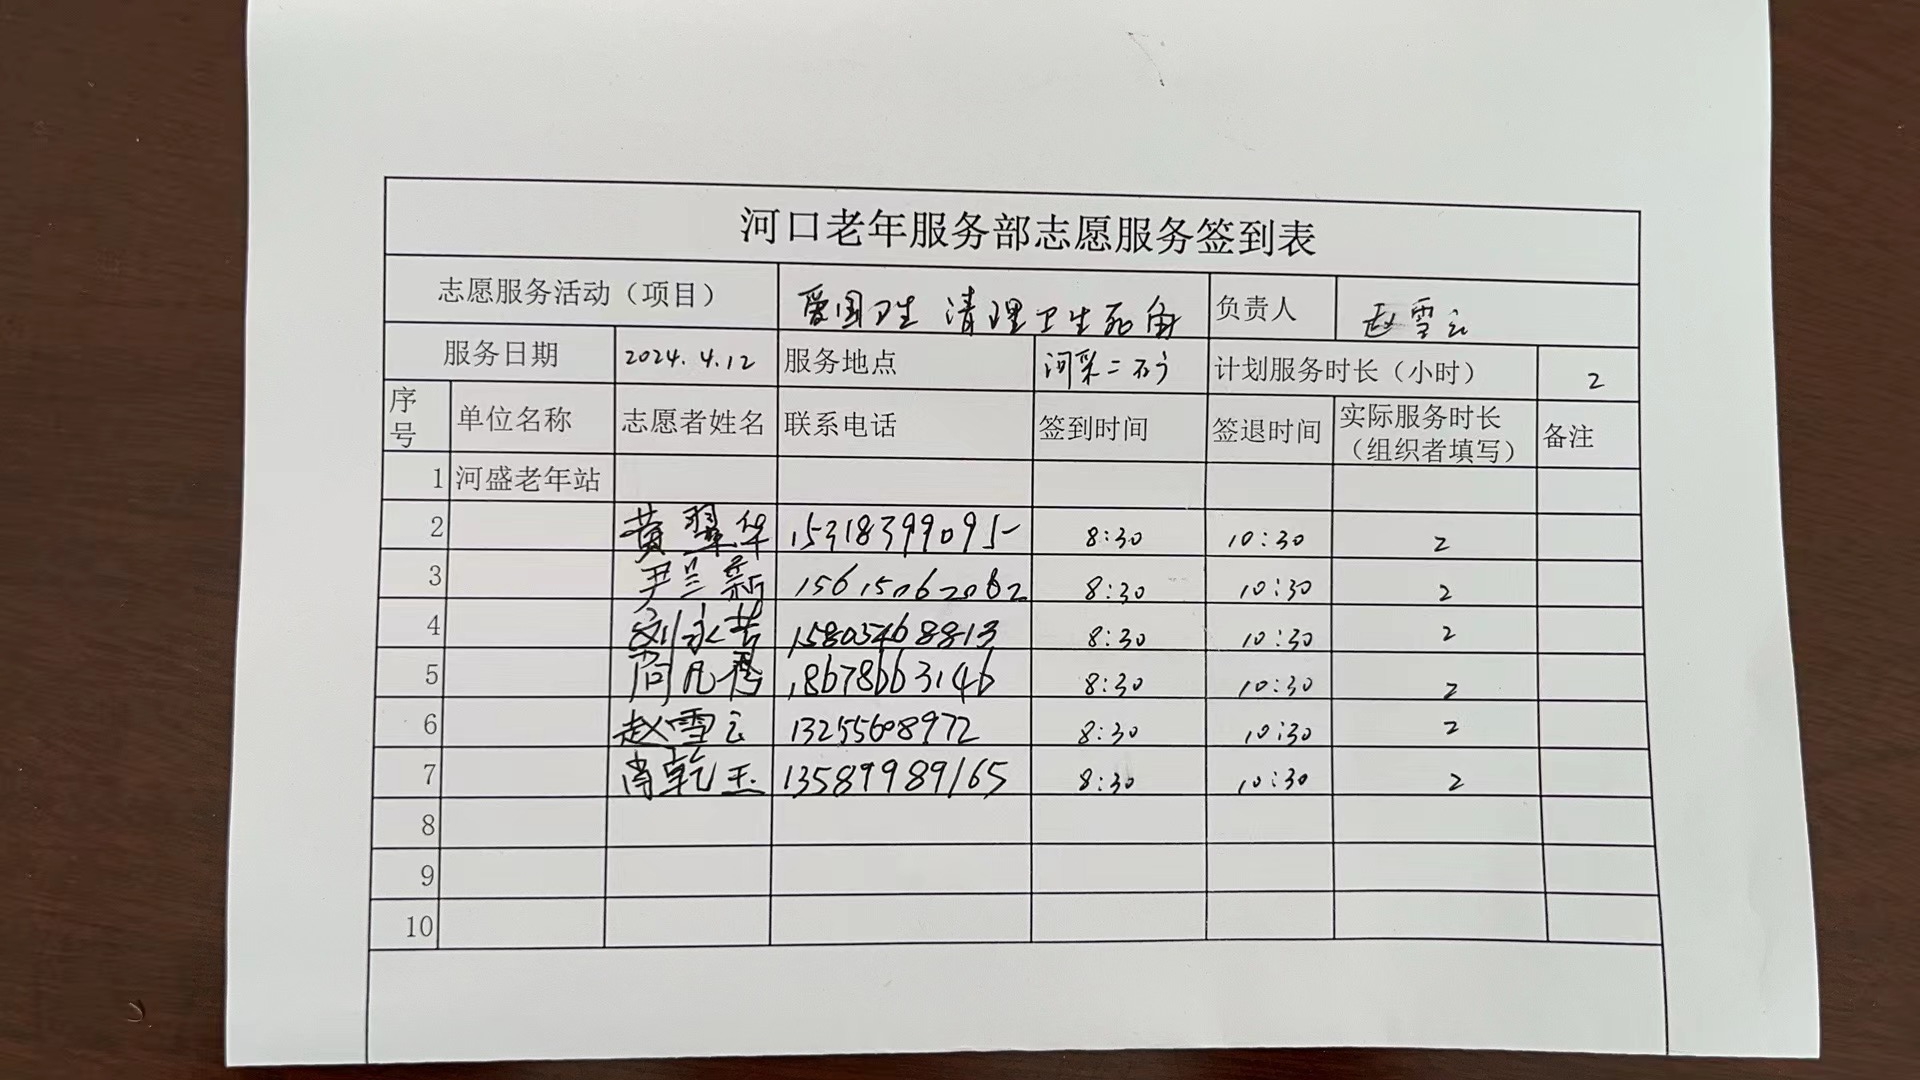 河口老年服务部志愿服务签到表
志愿服务活动（项目） 爱国卫生 清理卫生死角 负责人 赵雪云
服务日期 2024.4.12 服务地点 河采二矿 计划服务时长（小时） 2
序号 单位名称 志愿者姓名 联系电话 签到时间 签退时间 实际服务时长（组织者填写） 备注
1 河盛老年站
2 黄翠华 15318399095 8:30 10:30 2
3 尹兰新 15615062082 8:30 10:30 2
4 刘永芳 15805468813 8:30 10:30 2
5 周凡 18678663146 8:30 10:30 2
6 赵雪云 13255608972 8:30 10:30 2
7 肖乾玉 13589989165 8:30 10:30 2
8
9
10